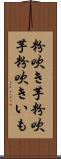 粉吹き芋粉吹
芋粉吹きいも